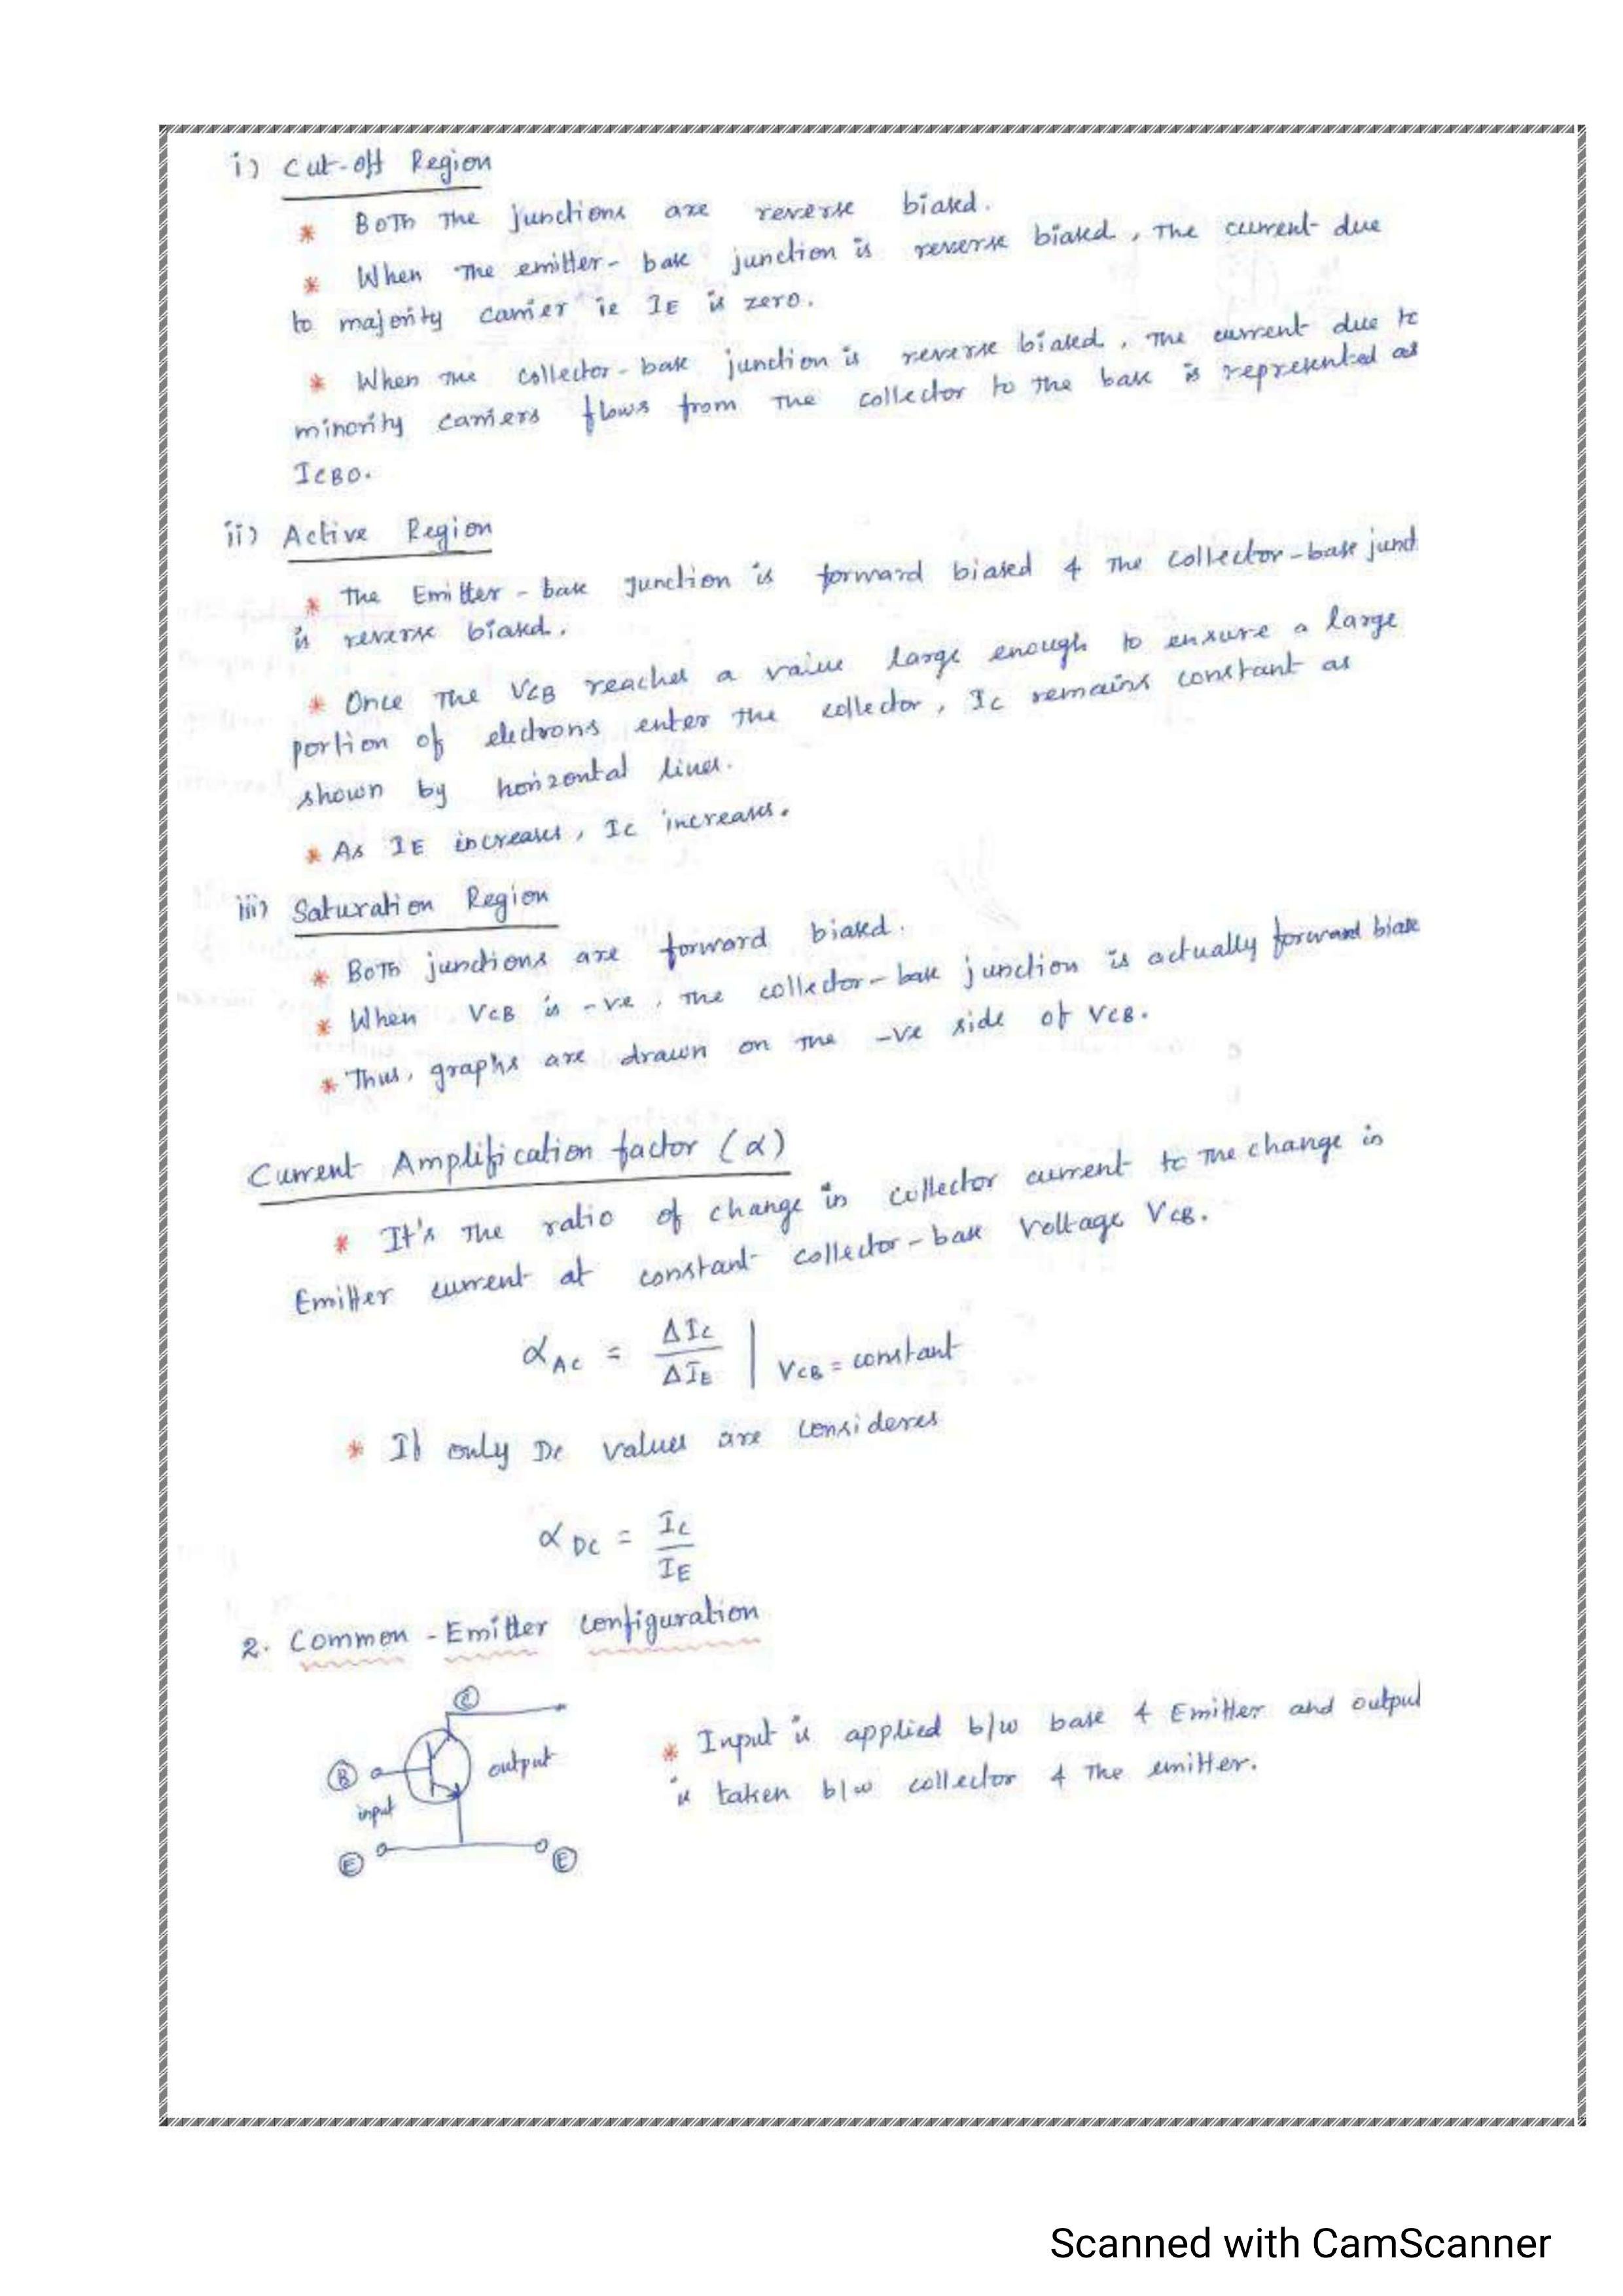 i) Cut-off Region
* Both the junctions are reverse biased.
* When the emitter-base junction is reverse biased, the current due
to majority carrier ie IE is zero.
* When the collector-base junction is reverse biased, the current due to
minority carriers flows from the collector to the base is represented as
ICBO.
ii) Active Region
* The Emitter-base junction is forward biased & the collector-base junct
is reverse biased.
* Once the VCB reaches a value large enough to ensure a large
portion of electrons enter the collector, IC remains constant as
shown by horizontal lines.
* As IE increases, IC increases.
iii) Saturation Region
* Both junctions are forward biased.
* When VCB is -ve, the collector-base junction is actually forward biase
* Thus, graphs are drawn on the -ve side of VCB.
Current Amplification factor (α)
* It's the ratio of change in collector current to the change in
Emitter current at constant collector-base voltage VCB.
αAC = ΔIC / ΔIE | VCB = constant
* If only DC values are consideres
αDC = IC / IE
2. Common-Emitter configuration
C
B
output
input
E
E
* Input is applied b/w base & Emitter and output
is taken b/w collector & the emitter.
Scanned with CamScanner